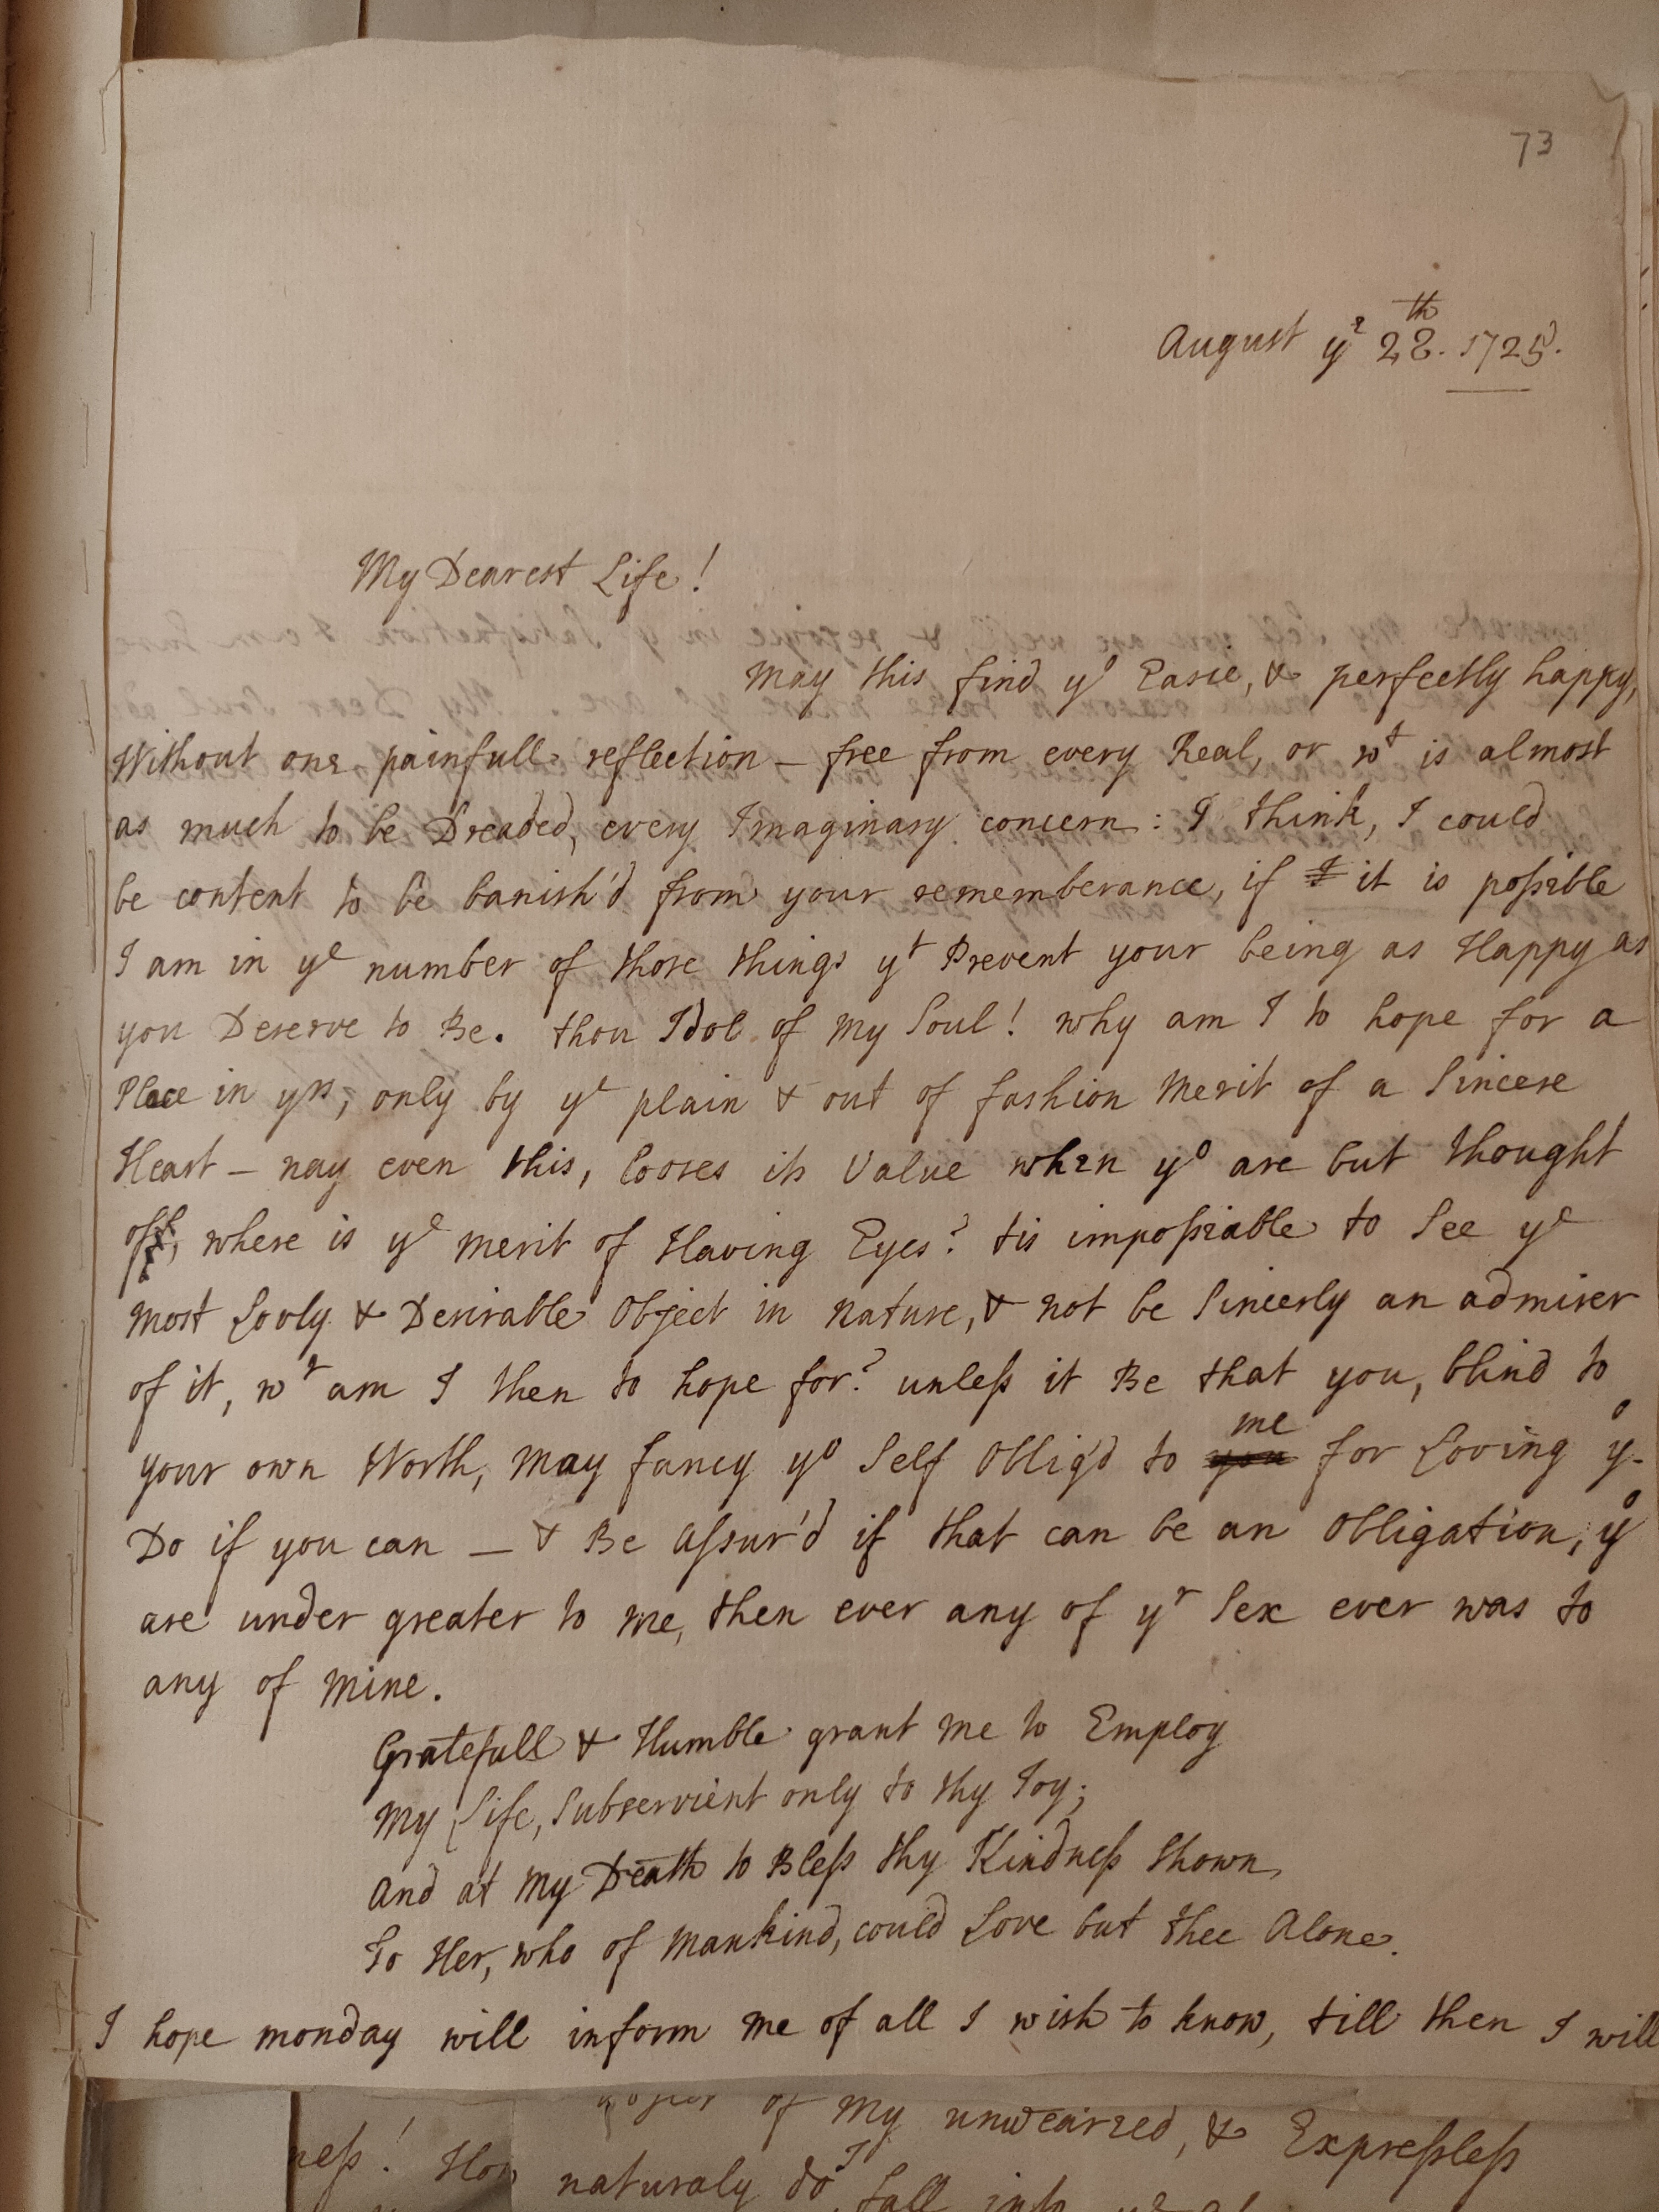 73
August yᵉ 28.ᵗʰ 1725.
My Dearest Life!
may this find yᵒ Easie, & perfectly happy,
Without one painfull reflection – free from every Real, or wᵗ is almost
as much to be Dreaded, every Imaginary concern: I think, I could
be content to be banish'd from your rememberance, if I it is possible
I am in yᵉ number of those things yᵗ Prevent your being as Happy as
you Deserve to Be. thou Idol of my Soul! why am I to hope for a
Place in yʳˢ, only by yᵉ plain & out of fashion Merit of a Sincere
Heart – nay even this, looses its Value when yᵒ are but thought
off, where is yᵉ merit of Having Eyes? tis impossiable to See yᵉ
most Lovly & Desirable Object in nature, & not be Sincerly an admirer
of it, wᵗ am I then to hope for? unless it Be that you, blind to
your own Worth, may fancy yᵒ Self Oblig'd to you me for Loving yᵒ.
Do if you can – & Be assur'd if that can be an Obligation, yᵒ
are under greater to me, then ever any of yʳ Sex ever was to
any of mine.
Gratefull & Humble grant me to Employ
My Life, Subservient only to thy Joy;
And at my Death to Bless thy Kindness Shown,
To Her, who of mankind, could Love but thee Alone.
I hope monday will inform me of all I wish to know, till then I will
of my unweairied, & Expressless
ness! How
naturaly do I fall into yᵉ